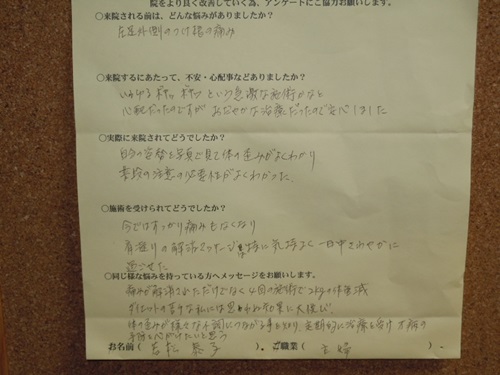 院をより良く改善していく為、アンケートにご協力お願いします。
○来院される前は、どんな悩みがありましたか？
左足外側のつけ指の痛み
○来院するにあたって、不安・心配事などありましたか？
いわゆる ボキッ ボキッ という急激な施術かなと
心配だったのですが おだやかな治療だったので安心しました
○実際に来院されてどうでしたか？
自分の姿勢を写真で見て体の歪みがよくわかり
普段の注意の必要性がよくわかった。
○施術を受けられてどうでしたか？
今ではすっかり痛みもなくなり
肩凝りの解消マッサージ 気持よく 一日中さわやかに
過ごせた
○同じ様な悩みを持っている方へメッセージをお願いします。
痛みが解消されただけでなく 4回の施術で2kgの体重減
ダイエットの苦手な私には思わぬ効果に大喜び!
体の歪みが様々な不調につながる事を知り、定期的に治療を受け 万病の
予防を心がけたいと思う
お名前（ ）．ご職業（ 主婦 ）．